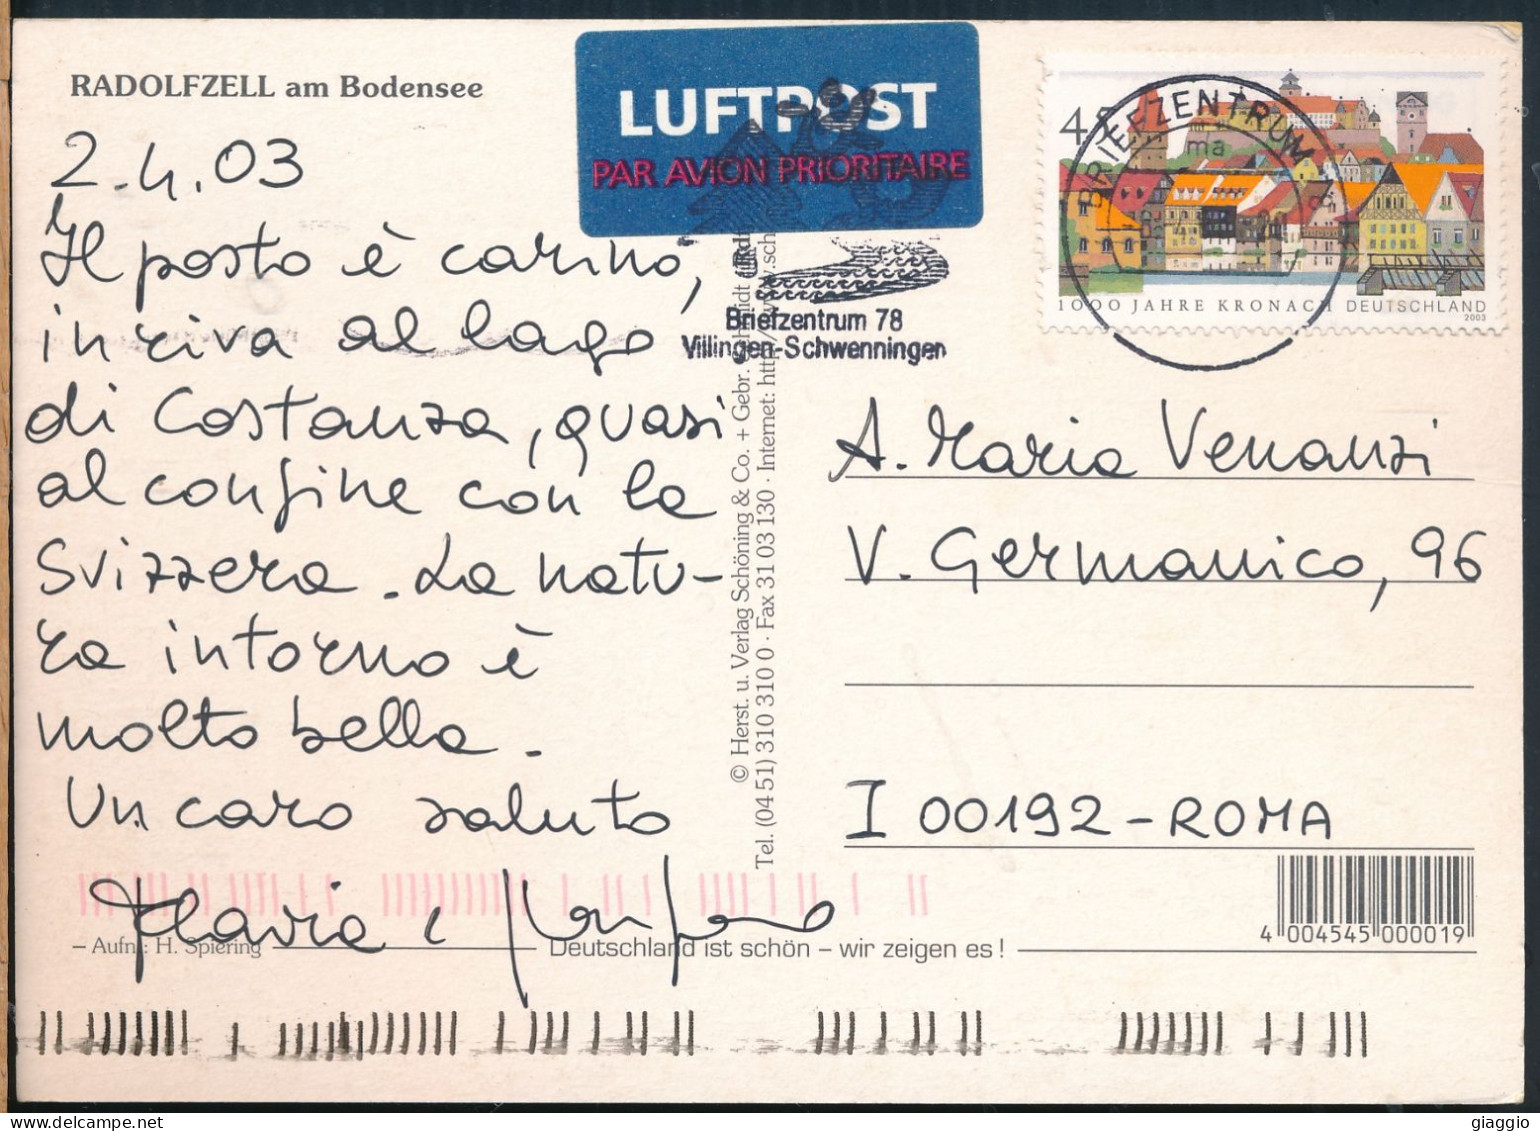 RADOLFZELL am Bodensee
2.4.03
Il posto è carino,
in riva al lago
di Costanza, quasi
al confine con la
Svizzera. La natu-
ra intorno è
molto bella.
Un caro saluto
Flavia e
– Aufn.: H. Spiering
Deutschland ist schön – wir zeigen es!
LUFTPOST
PAR AVION PRIORITAIRE
Briefzentrum 78
Villingen-Schwenningen
© Herst. u. Verlag Schöning & Co. + Gebr. Schmidt
Tel. (04 51) 310 310 0 · Fax 31 03 130 · Internet: http
BRIEFZENTRUM
45
1000 JAHRE KRONACH DEUTSCHLAND
2003
A. Maria Venanzi
V. Germanico, 96
I 00192 - ROMA
4 004545 000019
giaggio